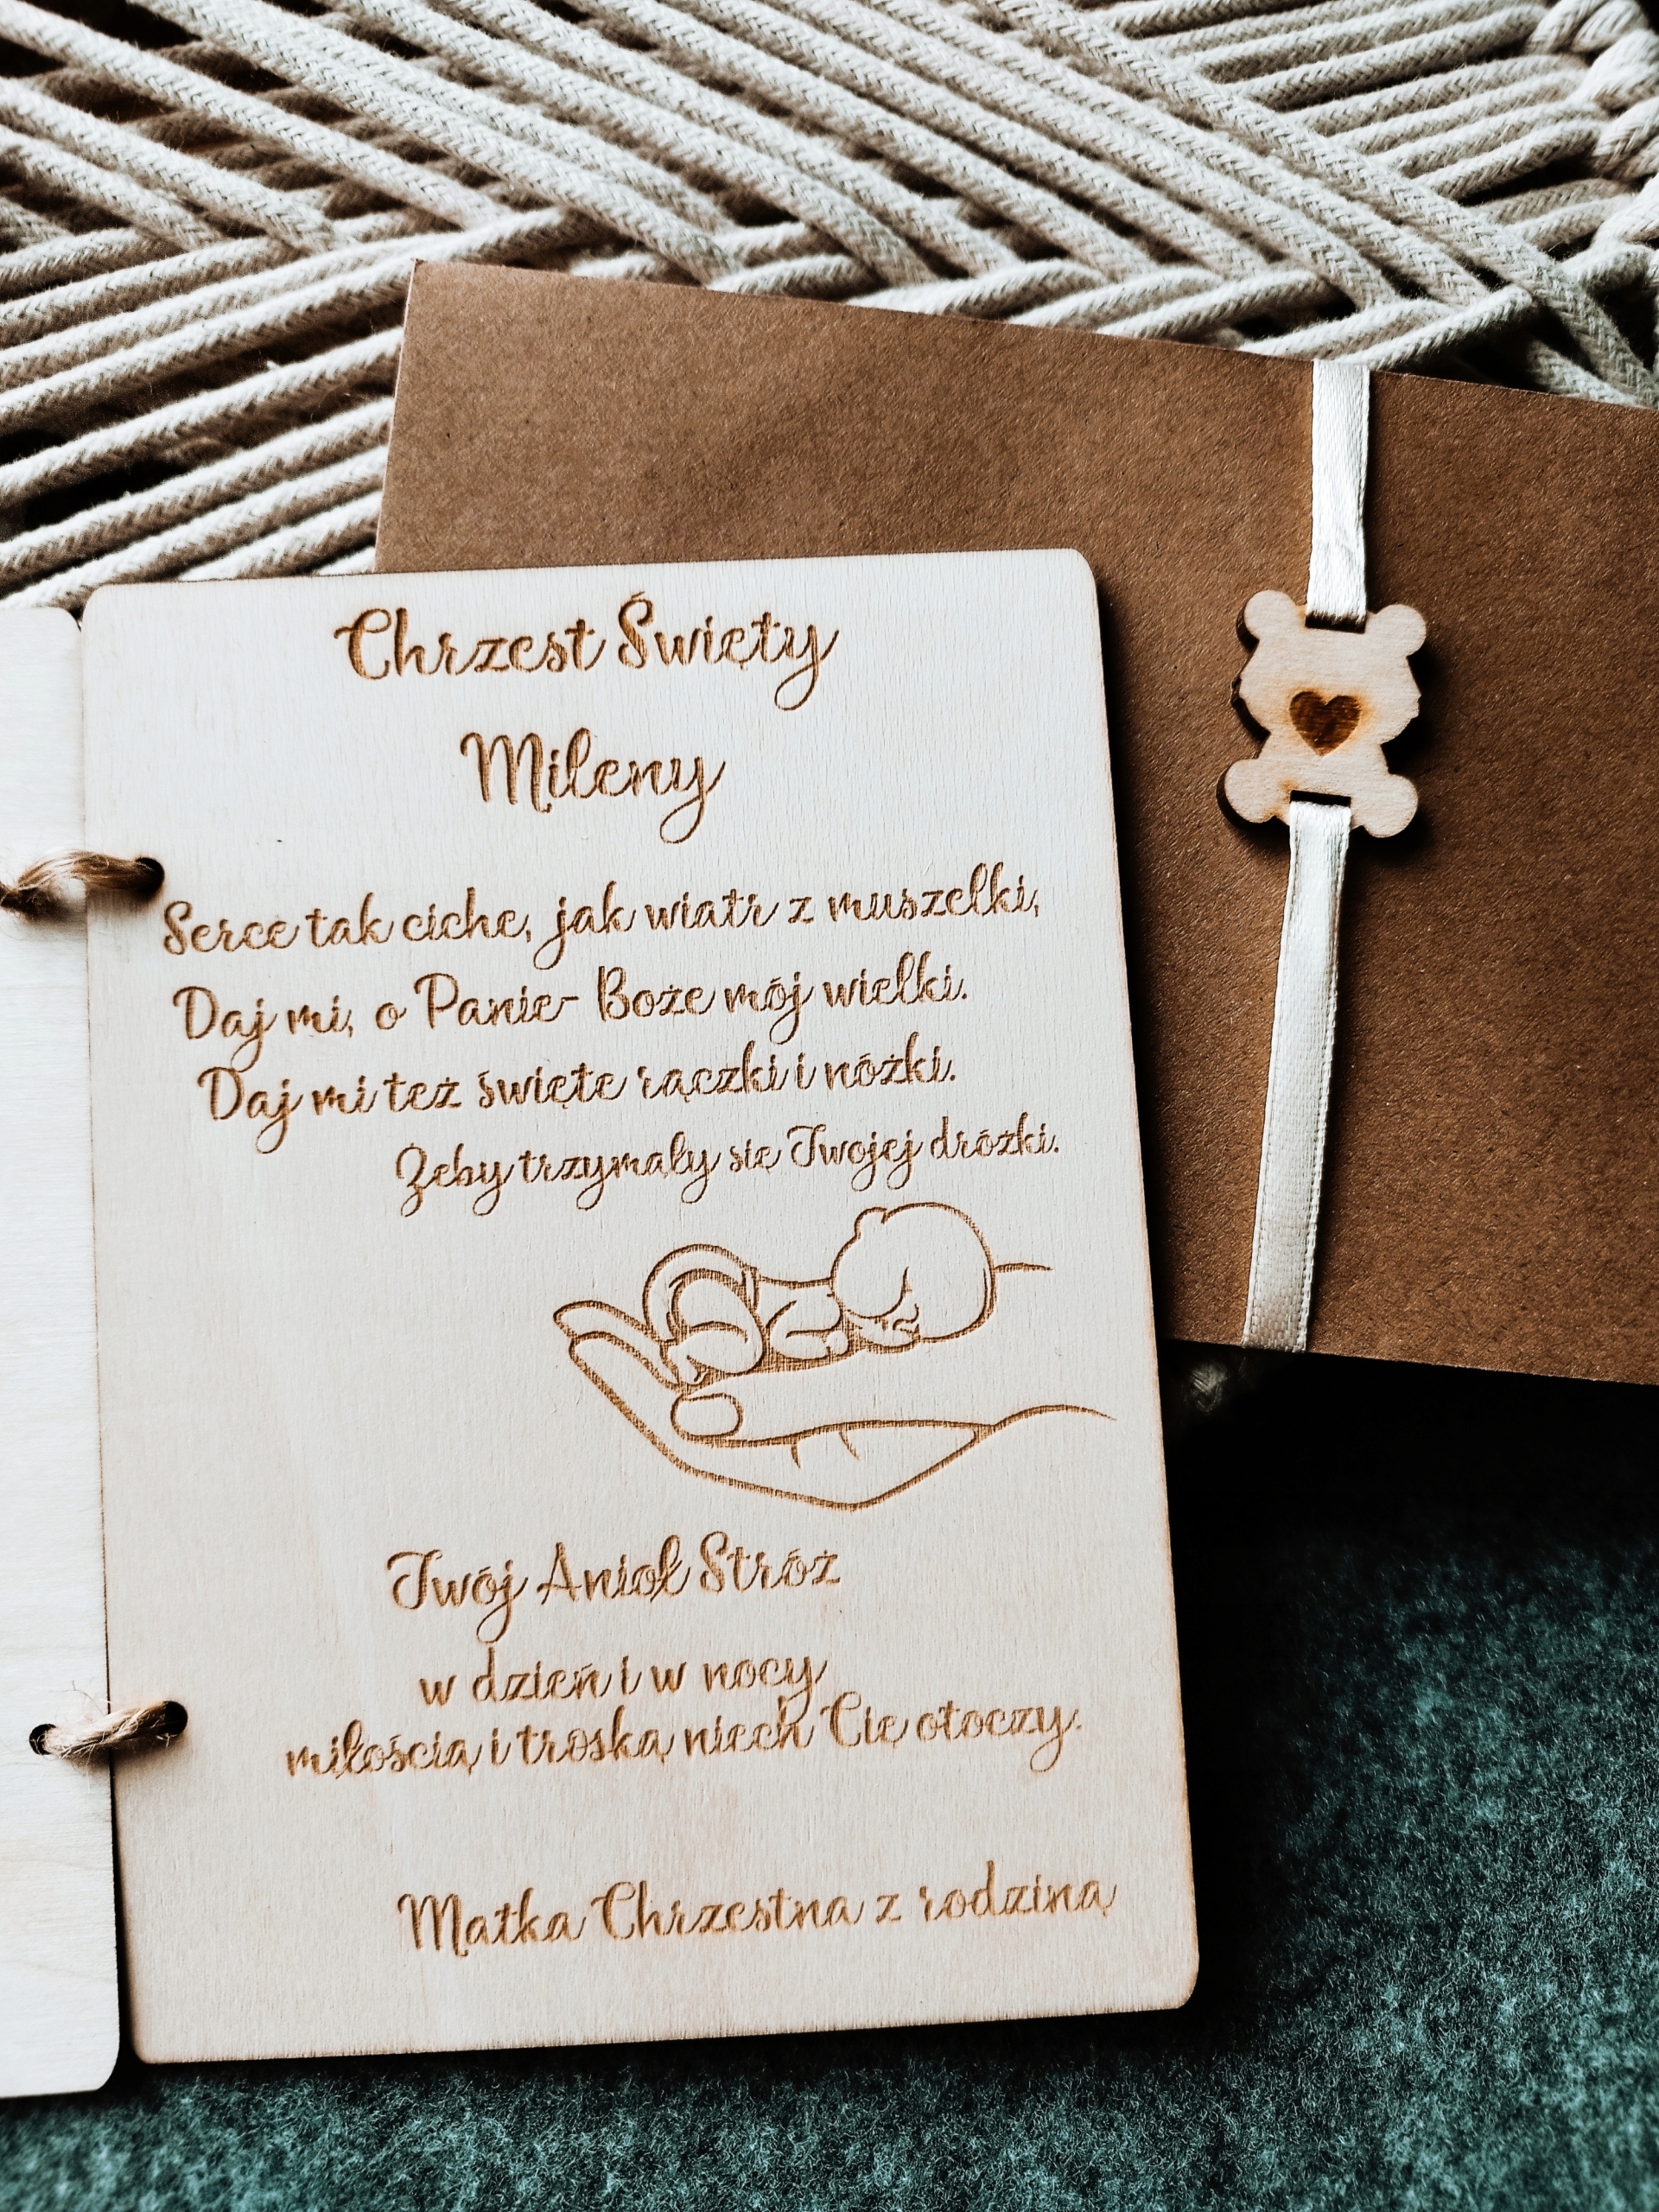 Chrzest Święty
Mileny
Serce tak ciche, jak wiatr z muszelki,
Daj mi, o Panie- Boże mój wielki.
Daj mi też święte rączki i nóżki.
Żeby trzymały się Twojej dróżki.
Twój Anioł Stróż
w dzień i w nocy
miłością i troską niech Cię otoczy.
Matka Chrzestna z rodziną